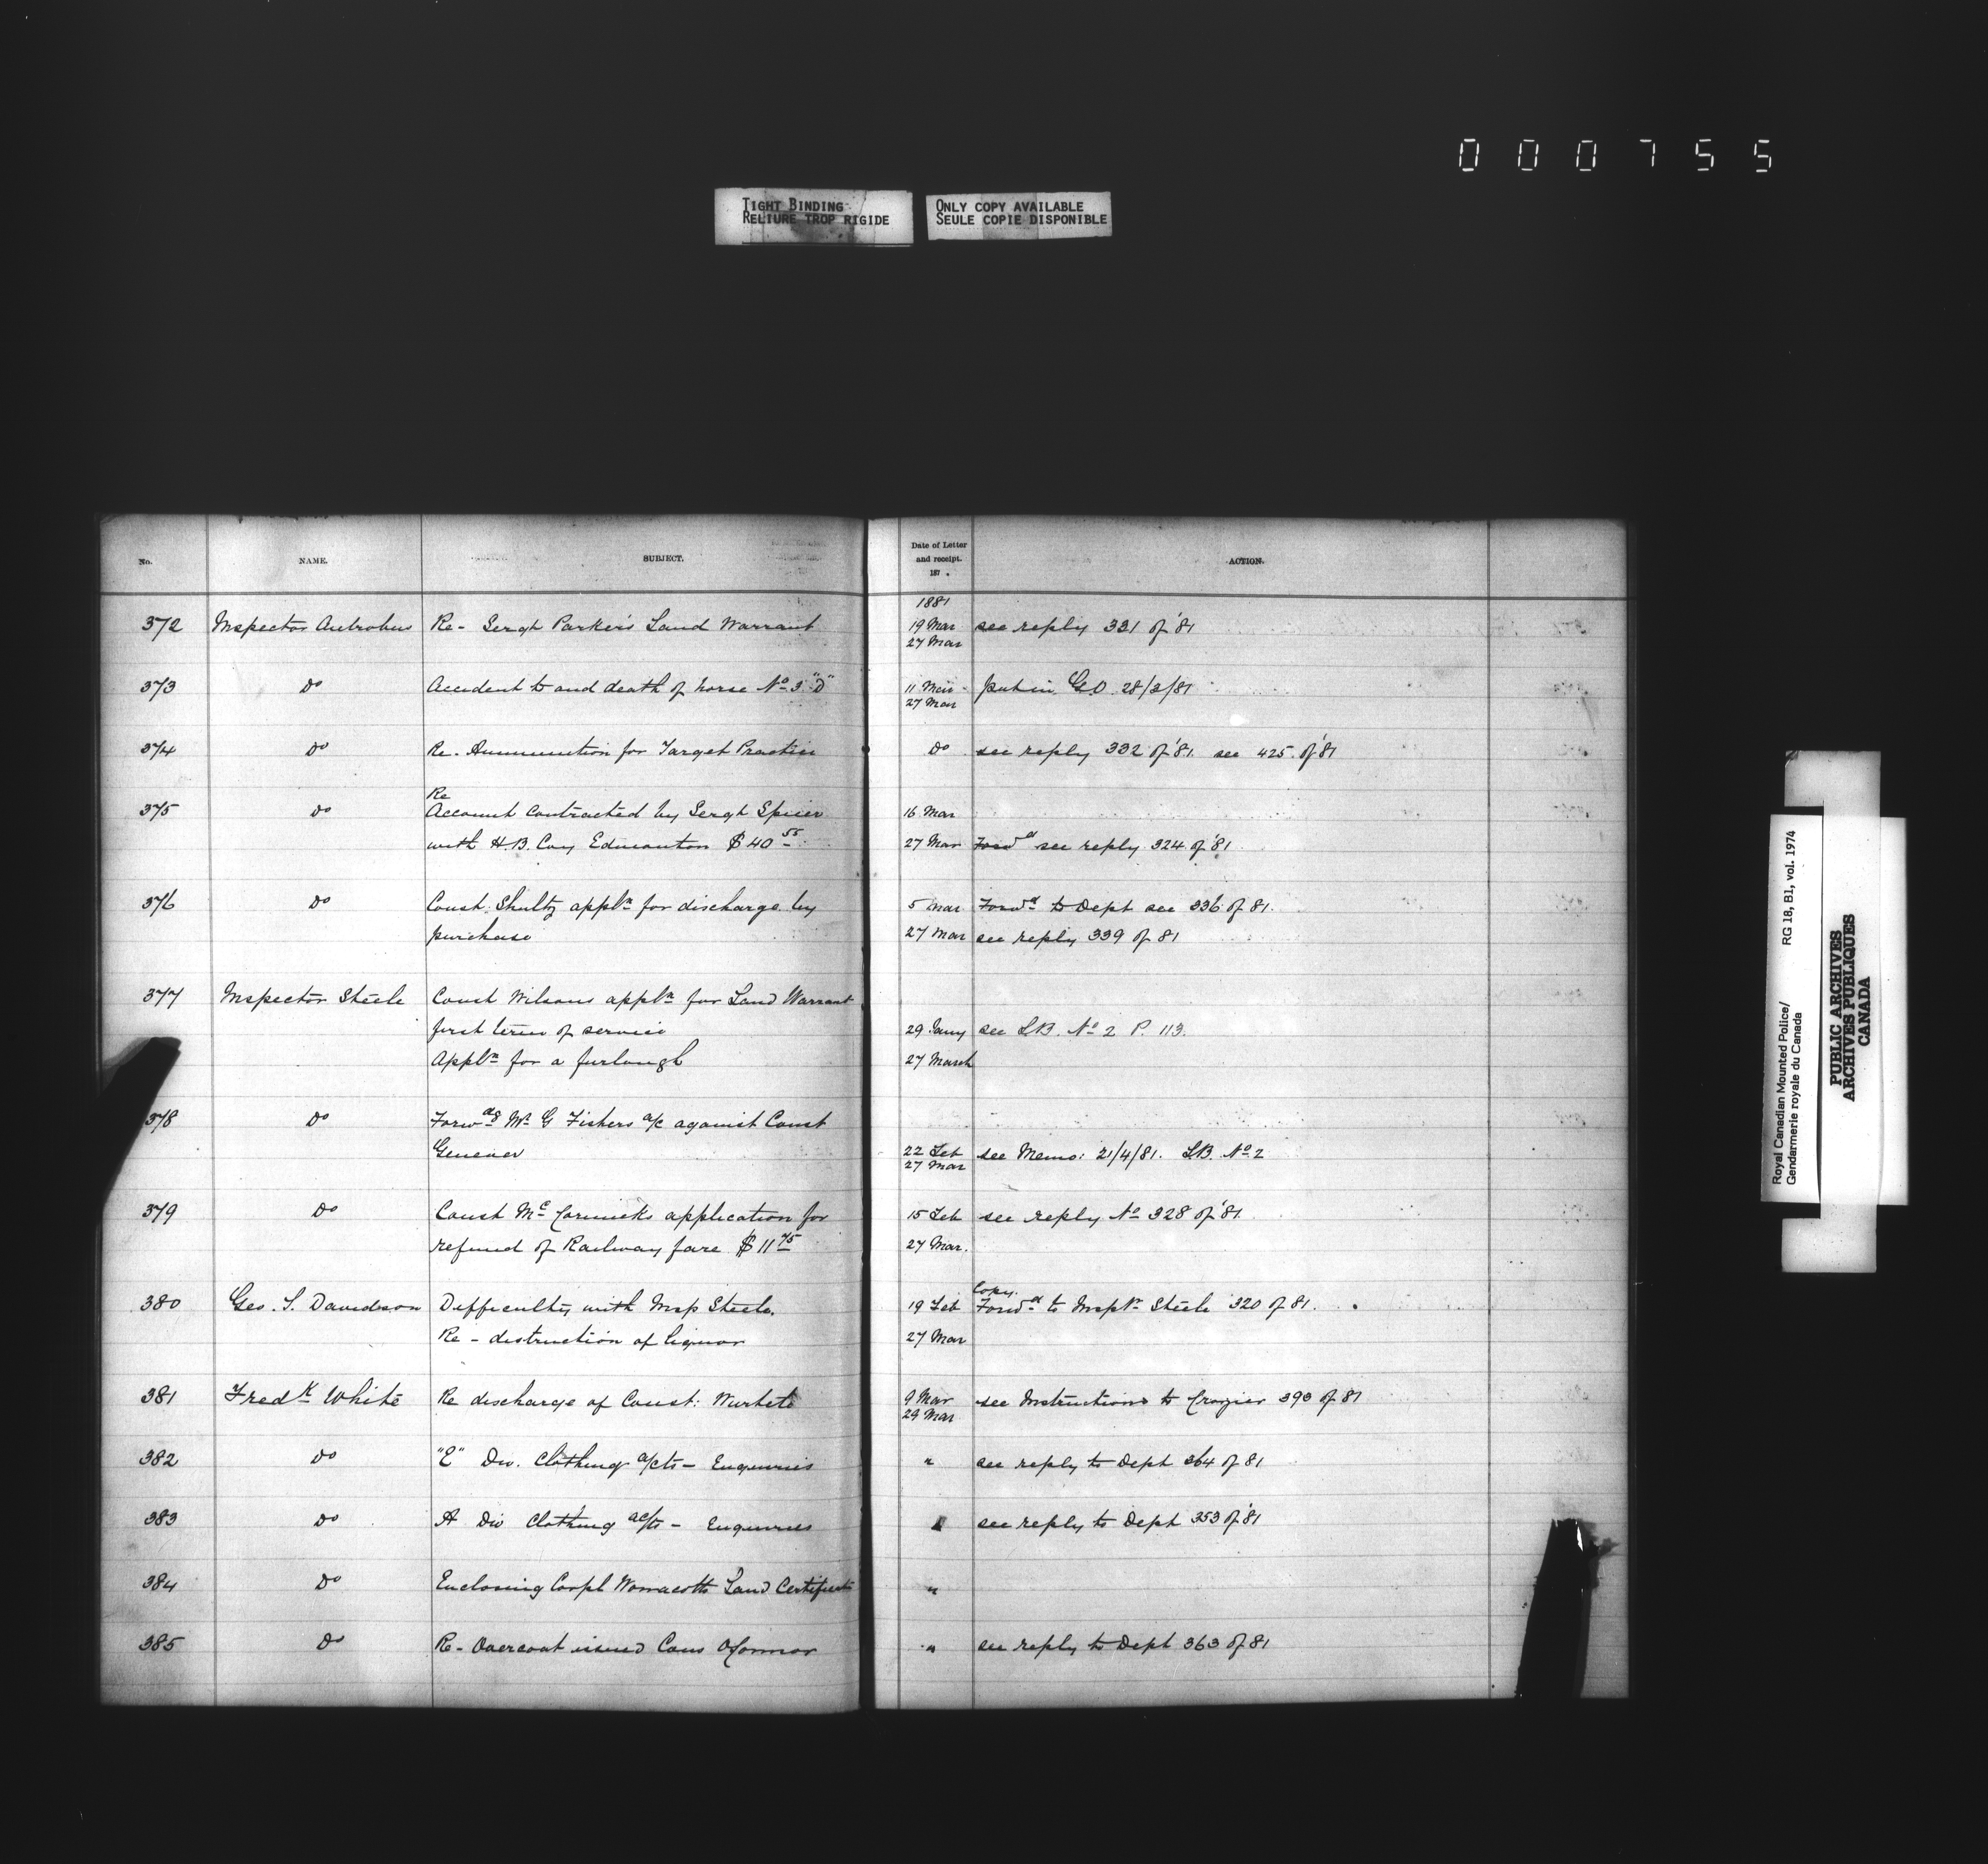 000755
TIGHT BINDING
RELIURE TROP RIGIDE
ONLY COPY AVAILABLE
SEULE COPIE DISPONIBLE
No. NAME. SUBJECT. Date of Letter and receipt. 187 . ACTION.
1881
372 Inspector Antrobus Re - Sergt Parker's Land Warrant 19 Mar see reply 331 of '81
27 Mar
373 Do Accident to and death of horse No 3 "D" 11 Mar put in G.O. 28/3/81
27 Mar
374 Do Re - Ammunition for Target Practice Do see reply 332 of '81. see 425 of '81
Re
375 Do Account contracted by Sergt Spicer 16 Mar
with H.B. Coy Edmonton $40 55 27 Mar Forwd see reply 324 of '81
376 Do Const. Shultz appln for discharge by 5 Mar Forwd to Dept see 336 of 81.
purchase 27 Mar see reply 339 of 81
377 Inspector Steele Const Wilsons appln for Land Warrant
first term of service 29 Jany see LB. No 2 P. 113.
Appln for a furlough 27 March
378 Do Forwdg Mr G Fishers a/c against Const
22 Feb see Memo: 21/4/81. LB. No 2
27 Mar
379 Do Const McCormicks application for 15 Feb see reply No 328 of '81
refund of Railway fare $11 75 27 Mar.
Copy.
380 Geo. S. Davidson Difficulty with Insp Steele. 19 Feb Forwd to Inspr Steele 320 of 81.
Re - distruction of liquor 27 Mar
381 Fredk White Re discharge of Const: 9 Mar see Instructions to Crozier 393 of 81
29 Mar
382 Do "E" Div. Clothing a/cts - Enquiries " see reply to Dept 364 of 81
383 Do A Div Clothing ac/ts - Enquiries see reply to Dept 353 of '81
384 Do Enclosing Corpl Wonnacotts Land Certificate "
385 Do Re - Overcoat issued Cons O'Connor " see reply to Dept 363 of 81
Royal Canadian Mounted Police/ RG 18, B1, vol. 1974
Gendarmerie royale du Canada
PUBLIC ARCHIVES
ARCHIVES PUBLIQUES
CANADA